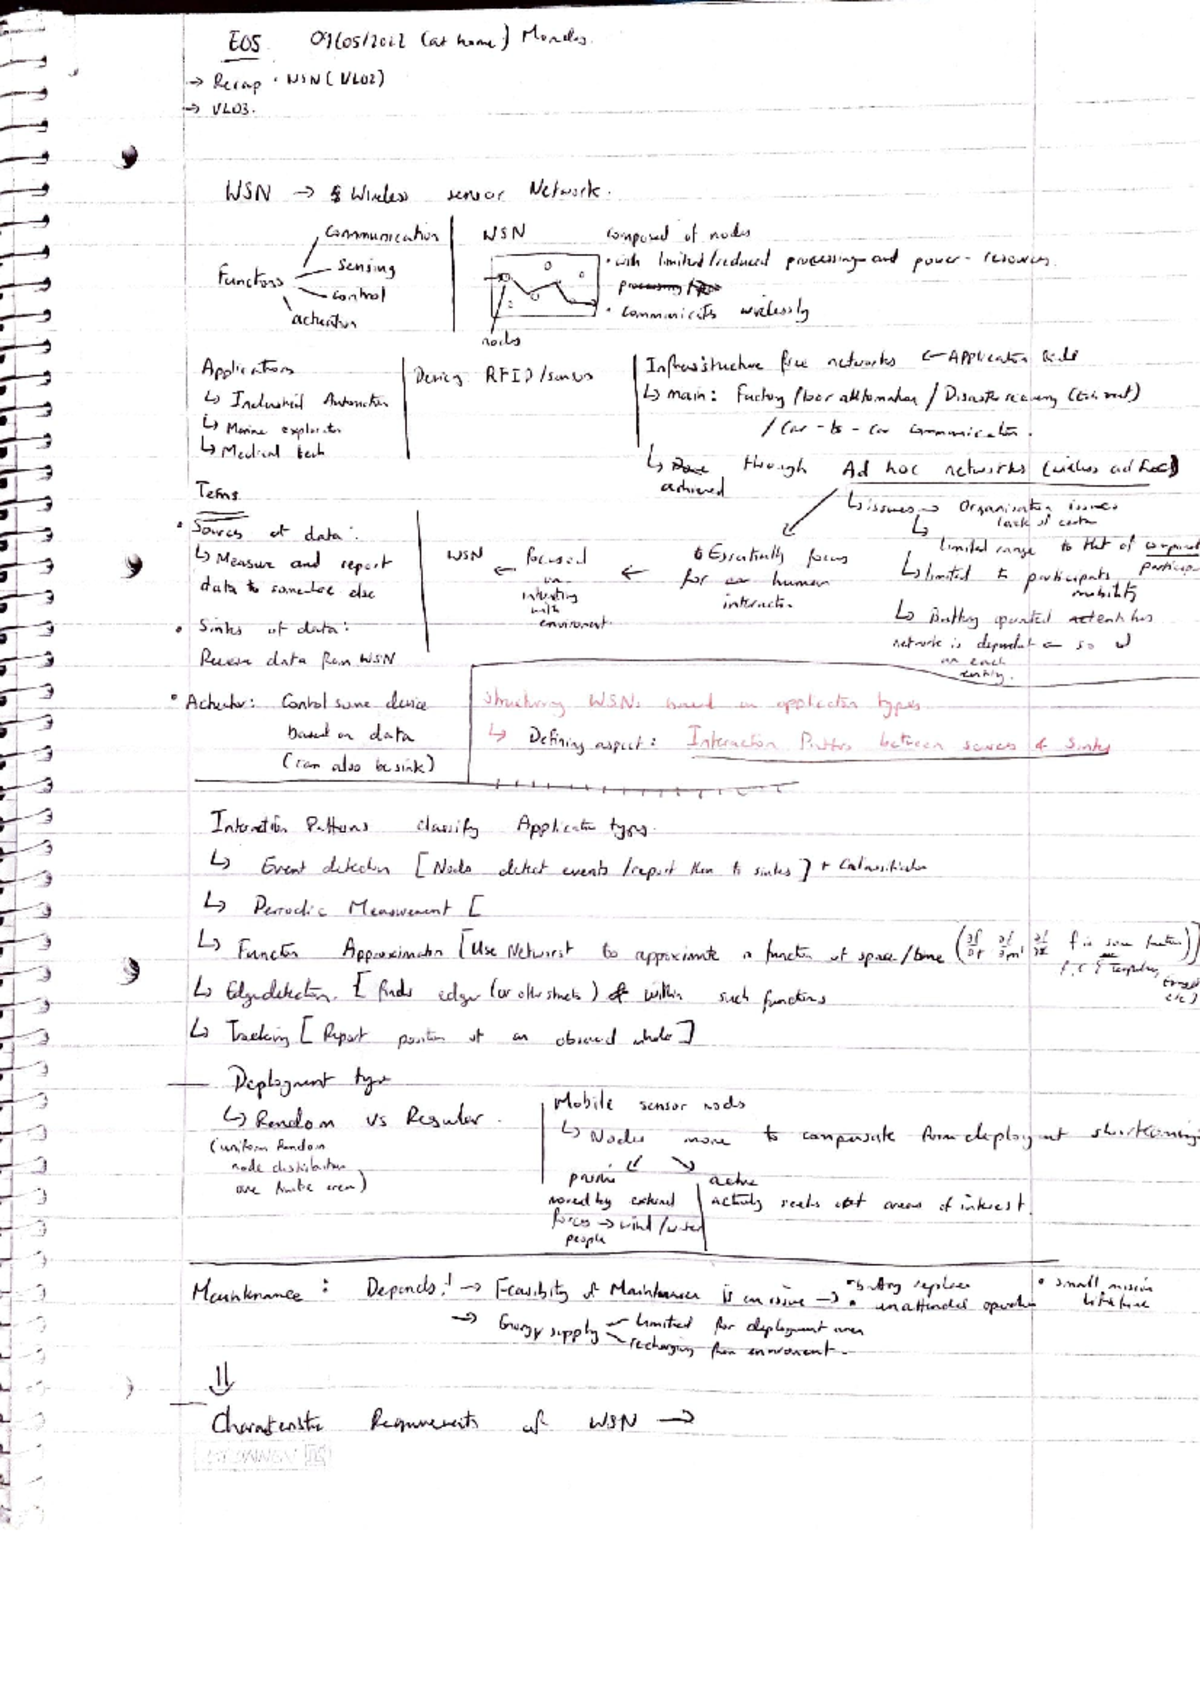 EOS 09/05/2022 (at home) Monday.
→ Recap · WSN (VL02)
→ VL03.
WSN → Wireless sensor Network.
Functions
communication
sensing
control
actuation
WSN
nodes
composed of nodes
• with limited/reduced processing and power-resources.
• communicates wirelessly
Applications
↳ Industrial Automation
↳ Marine exploration
↳ Medical tech
Devices RFID/sensors
Infrastructure free networks ← Application
↳ main: Factory / automation / Disaster recovery
/ Car-to-car communication.
↳ achieved through Ad hoc networks (wireless ad hoc)
↳ issues → Organisation issues
↳ lack of
limited range to that of
↳ limited to participants mobility
↳ Battery operated entities
network is dependent ← so
on each
entity.
Essentially focus
for human
interaction
←
WSN focused
←
on
interacting
with
environment
Terms
• Sources of data:
↳ Measure and report
data to somewhere else
• Sinks of data:
Receive data from WSN
• Actuator: Control some device
based on data
(can also be sink)
Structuring WSNs based on application types
↳ Defining aspect: Interaction Pattern between sources & sinks
Interaction Patterns classify Application types.
↳ Event detection [Nodes detect events / report them to sinks] + Classification
↳ Periodic Measurement [
↳ Function Approximation [Use Network to approximate a function of space/time ( f is some function)]
↳ Edge detection. [finds edges (or other structs) within such functions
↳ Tracking [Report position of an observed]
Deployment type
↳ Random vs Regular.
(uniform random
node distribution
over finite area)
Mobile sensor nodes
↳ Nodes move to compensate for deployment shortcomings
passive
moved by external
forces → wind/water
people
active
actively seeks out areas of interest
Maintenance: Depends! → Feasibility of Maintenance is an issue → • battery replace
• unattended operation
• small mission
lifetime
→ Energy supply
limited for deployment area
recharging from environment
⇓
Characteristic Requirements of WSN →